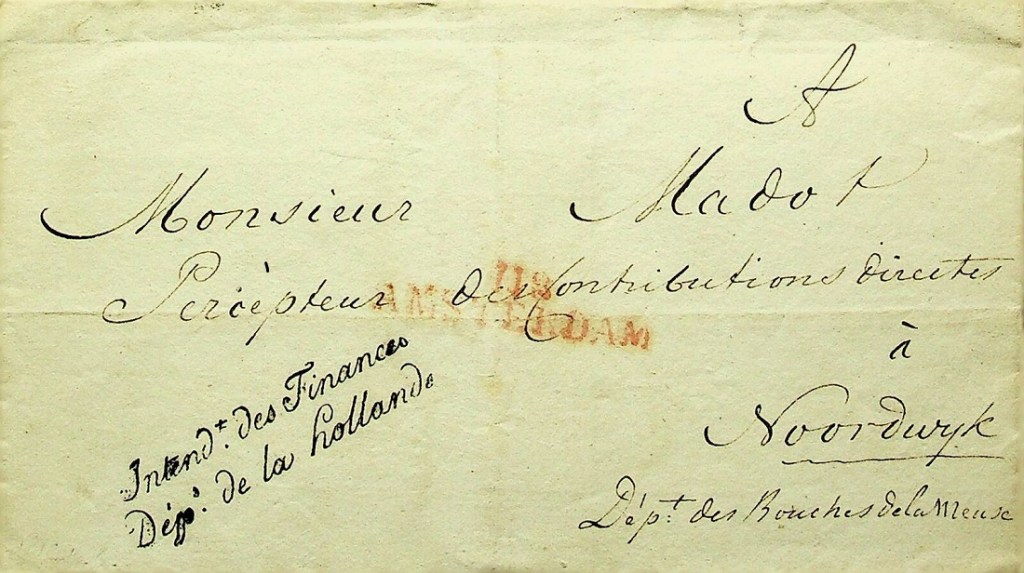 A
Monsieur Madot
Percèpteur des Contributions directes
118
AMSTERDAM
à
Noordwyk
Intendt. des Finances
Dépt. de la hollande
Dépt. des Bouches de la Meuse